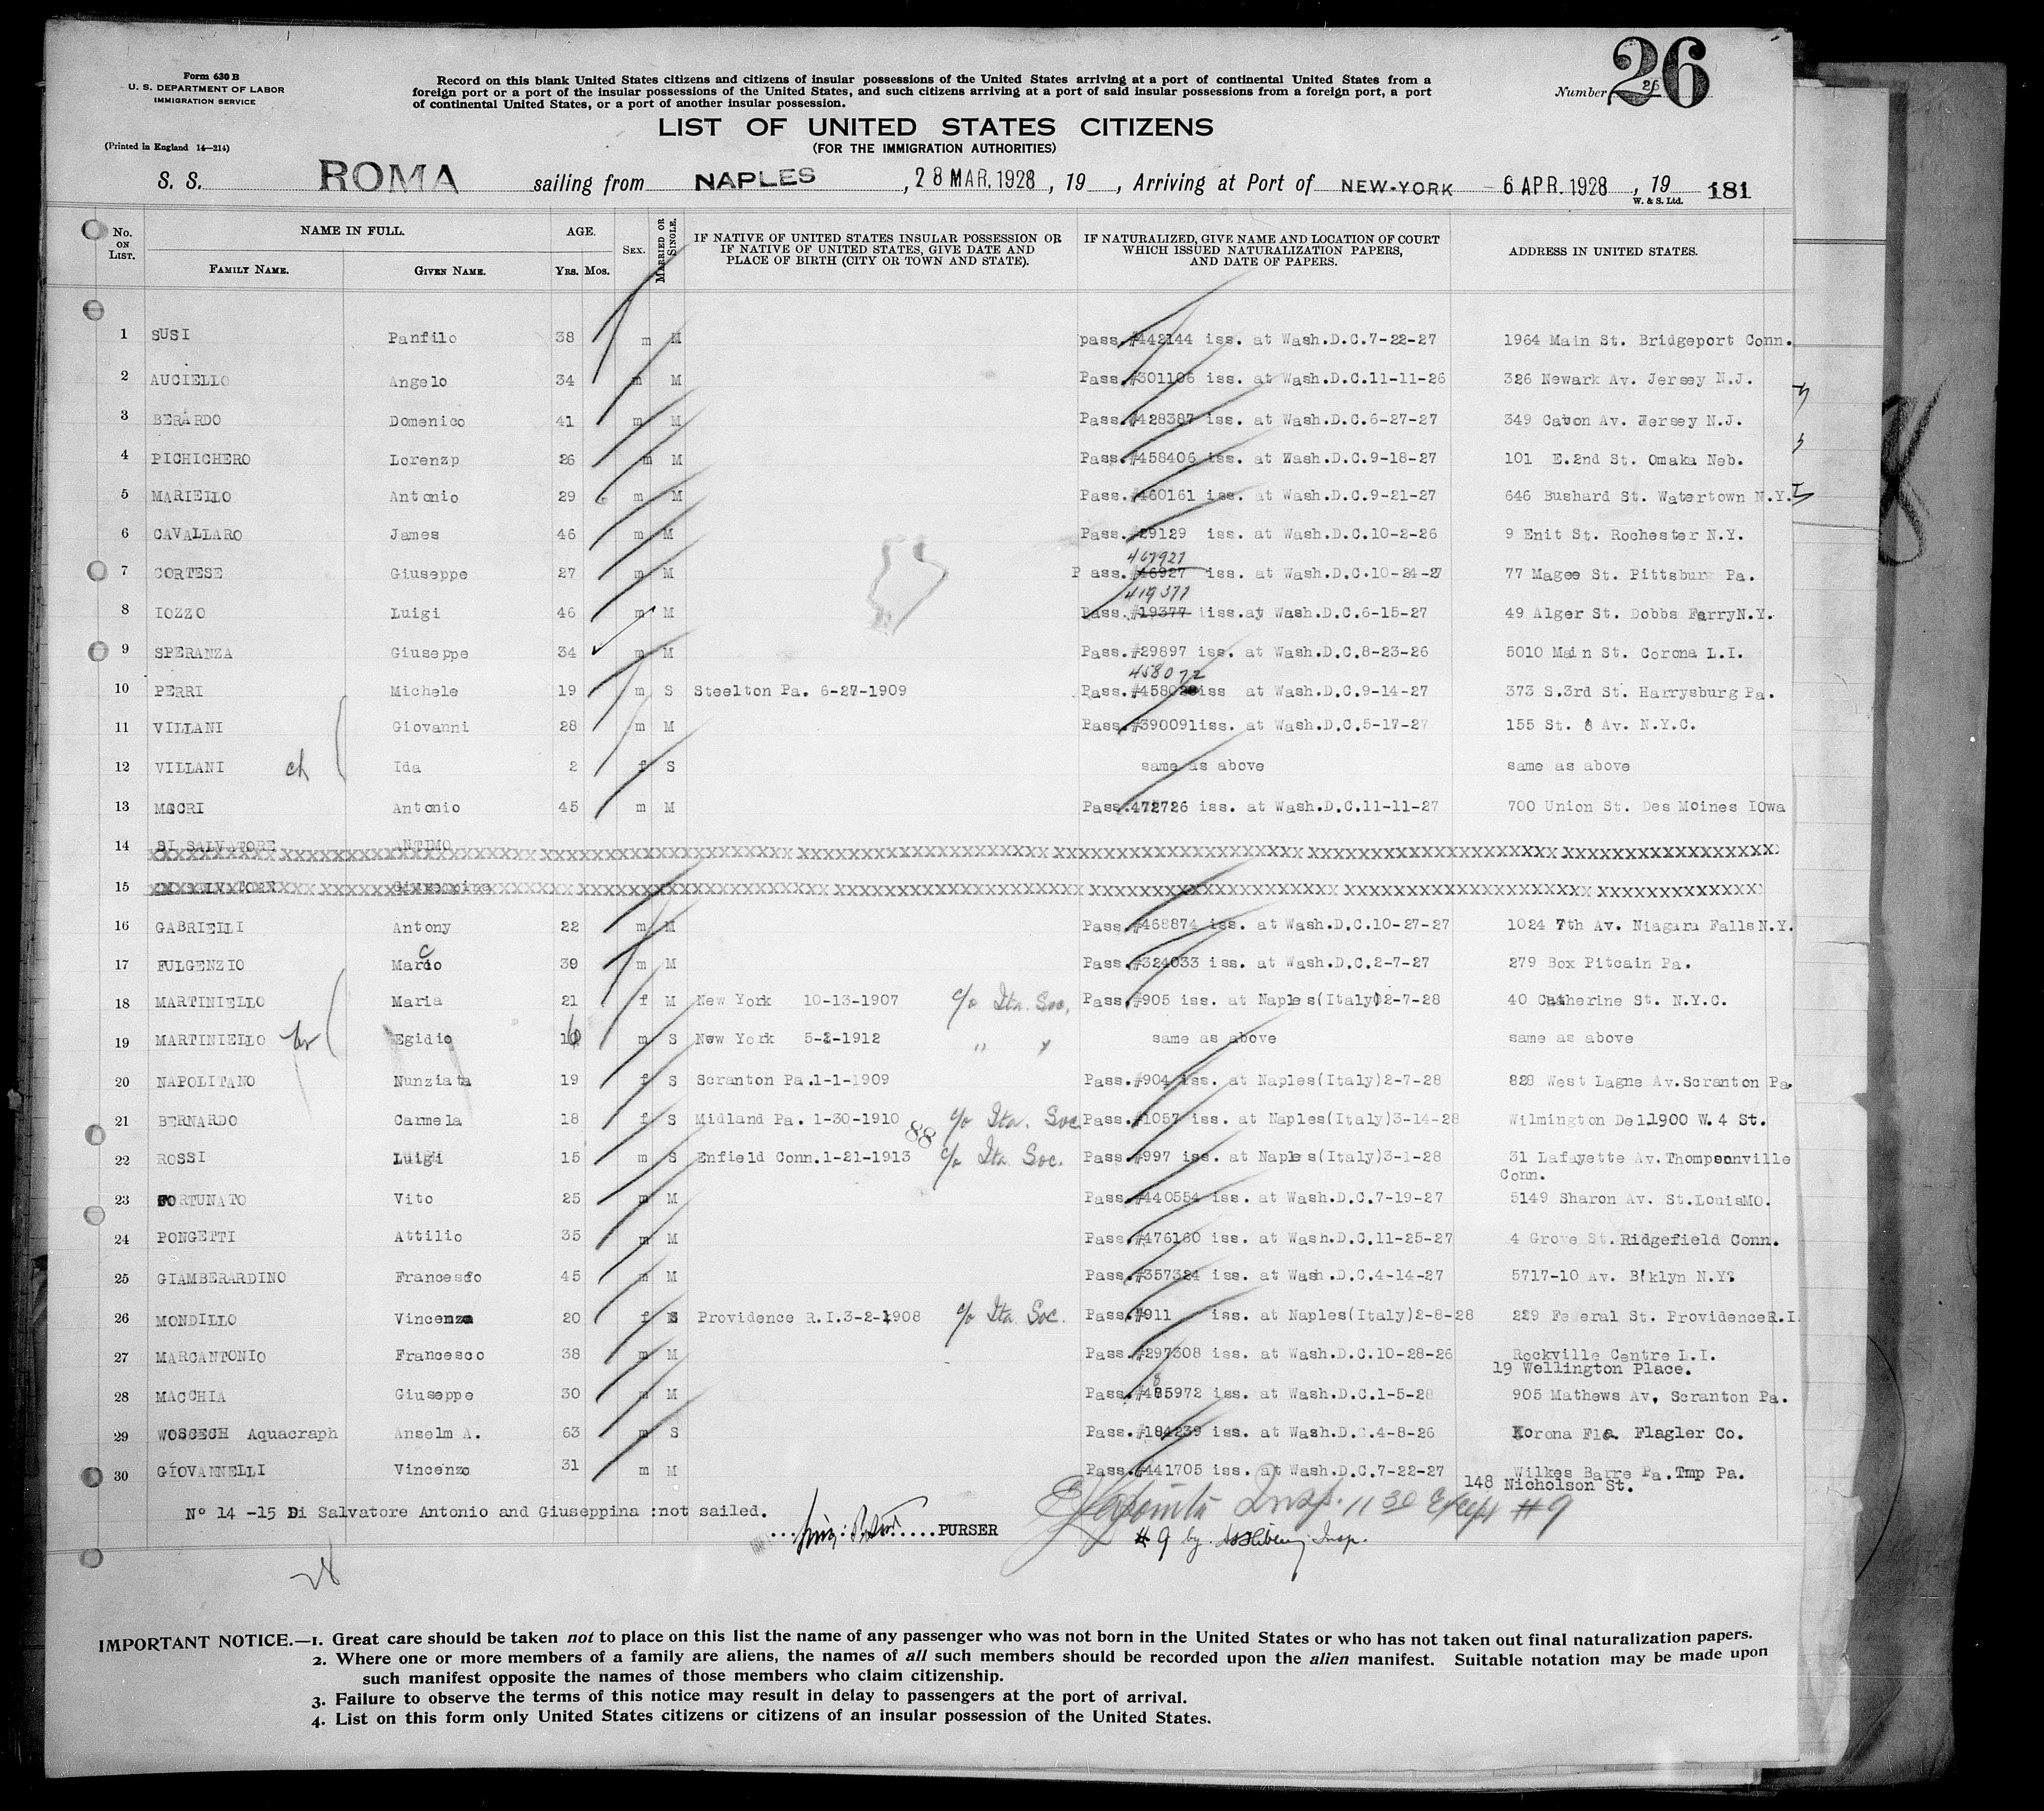 Form 630 B
U. S. DEPARTMENT OF LABOR
IMMIGRATION SERVICE
(Printed in England 14—214)
Record on this blank United States citizens and citizens of insular possessions of the United States arriving at a port of continental United States from a
foreign port or a port of the insular possessions of the United States, and such citizens arriving at a port of said insular possessions from a foreign port, a port
of continental United States, or a port of another insular possession.
Number 26
26
LIST OF UNITED STATES CITIZENS
(FOR THE IMMIGRATION AUTHORITIES)
S. S. ROMA sailing from NAPLES, 28 MAR. 1928, 19 , Arriving at Port of NEW-YORK - 6 APR. 1928, 19
W. & S. Ltd. 181
No. ON LIST. NAME IN FULL. AGE. SEX. MARRIED OR SINGLE. IF NATIVE OF UNITED STATES INSULAR POSSESSION OR IF NATIVE OF UNITED STATES, GIVE DATE AND PLACE OF BIRTH (CITY OR TOWN AND STATE). IF NATURALIZED, GIVE NAME AND LOCATION OF COURT WHICH ISSUED NATURALIZATION PAPERS, AND DATE OF PAPERS. ADDRESS IN UNITED STATES.
FAMILY NAME. GIVEN NAME. YRS. MOS.
1 SUSI Panfilo 38 m M pass.#442144 iss. at Wash.D.C.7-22-27 1964 Main St. Bridgeport Conn.
2 AUCIELLO Angelo 34 m M Pass.#301106 iss. at Wash.D.C.11-11-26 326 Newark Av. Jersey N.J.
3 BERARDO Domenico 41 m M Pass.#428387 iss. at Wash.D.C.6-27-27 349 Cabon Av. Jersey N.J.
4 PICHICHERO Lorenzp 26 m M Pass.#458406 iss. at Wash.D.C.9-18-27 101 E.2nd St. Omaka Neb.
5 MARIELLO Antonio 29 m M Pass.#460161 iss. at Wash.D.C.9-21-27 646 Bushard St. Watertown N.Y.
6 CAVALLARO James 46 m M Pass.#29129 iss. at Wash.D.C.10-2-26 9 Enit St. Rochester N.Y.
467927
7 CORTESE Giuseppe 27 m M P ass.#46927 iss. at Wash.D.C.10-24-27 77 Magee St. Pittsburg Pa.
419377
8 IOZZO Luigi 46 m M Pass.#19377 iiss.ay Wash.D.C.6-15-27 49 Alger St. Dobbs FarryN.Y.
9 SPERANZA Giuseppe 34 m M Pass.#29897 iss. at Wash.D.C.8-23-26 5010 Main St. Corona L.I.
458072
10 PERRI Michele 19 m S Steelton Pa. 6-27-1909 Pass.#45802 iss at Wash.D.C.9-14-27 373 S.3rd St. Harrysburg Pa.
11 VILLANI Giovanni 28 m M Pass.#390091iss. at Wash.D.C.5-17-27 155 St. 8 Av. N.Y.C.
12 VILLANI ch Ida 2 f S same as above same as above
13 MACRI Antonio 45 m M Pass.472726 iss. at Wash.D.C.11-11-27 700 Union St. Des Moines IOwa
14 DI SALVATORE ANTIMO
15 DI SALVATORE Giuseppina
16 GABRIELLI Antony 22 m M Pass.#468874 iss. at Wash.D.C.10-27-27 1024 7th Av. Niagara FallsN.Y.
17 FULGENZIO Marco 39 m M Pass.#324033 iss. at Wash.D.C.2-7-27 279 Box Pitcain Pa.
18 MARTINIELLO Maria 21 f M New York 10-13-1907 c/o Ita. Soc. Pass.#905 iss. at Naples(Italy)2-7-28 40 Catherine St. N.Y.C.
19 MARTINIELLO br Egidio 16 m S New York 5-2-1912 " " same as above same as above
20 NAPOLITANO Nunziata 19 f S Scranton Pa.1-1-1909 Pass.#904 iss. at Naples(Italy)2-7-28 828 West Lagne Av.Scranton Pa.
21 BERNARDO Carmela 18 f S Midland Pa. 1-30-1910 c/o Ita. Soc. Pass.#1057 iss. at Naples(Italy)3-14-28 Wilmington Del.1900 W.4 St.
88
22 ROSSI Luigi 15 m S Enfield Conn.1-21-1913 c/o Ita Soc. Pass.#997 iss. at Naples(Italy)3-1-28 31 Lafayette Av.Thompsonville
Conn.
23 FORTUNATO Vito 25 m M Pass.#440554 iss. at Wash.D.C.7-19-27 5149 Sharon Av. St.LouisMO.
24 PONGETTI Attilio 35 m M Pass.#476160 iss. at Wash.D.C.11-25-27 4 Grove St.Ridgefield Conn.
25 GIAMBERARDINO Francesco 45 m M Pass.#357324 iss. at Wash.D.C.4-14-27 5717-10 Av. B'klyn N.Y.
26 MONDILLO Vincenza 20 f S Providence R.I.3-2-1908 c/o Ita Soc. Pass.#911 iss. at Naples(Italy)2-8-28 229 Federal St. ProvidenceR.I.
27 MARCANTONIO Francesco 38 m M Pass.#297308 iss. at Wash.D.C.10-28-26 Rockville Centre L.I.
19 Wellington Place.
28 MACCHIA Giuseppe 30 m M Pass.#485972 iss. at Wash.D.C.1-5-28 905 Mathews Av, Scranton Pa.
29 WOSCECH Aquacraph Anselm A. 63 m S Pass.#184239 iss. at Wash.D.C.4-8-26 Korona Fla. Flagler Co.
30 GIOVANNELLI Vincenzo 31 m M Pass.#441705 iss. at Wash.D.C.7-22-27 Wilkes Barre Pa.Tmp Pa.
148 Nicholson St.
N° 14 -15 Di Salvatore Antonio and Giuseppina :not sailed.
PURSER
Insp. 11 30 Except #9
# 9 by Insp.
IMPORTANT NOTICE.—1. Great care should be taken not to place on this list the name of any passenger who was not born in the United States or who has not taken out final naturalization papers.
2. Where one or more members of a family are aliens, the names of all such members should be recorded upon the alien manifest. Suitable notation may be made upon
such manifest opposite the names of those members who claim citizenship.
3. Failure to observe the terms of this notice may result in delay to passengers at the port of arrival.
4. List on this form only United States citizens or citizens of an insular possession of the United States.